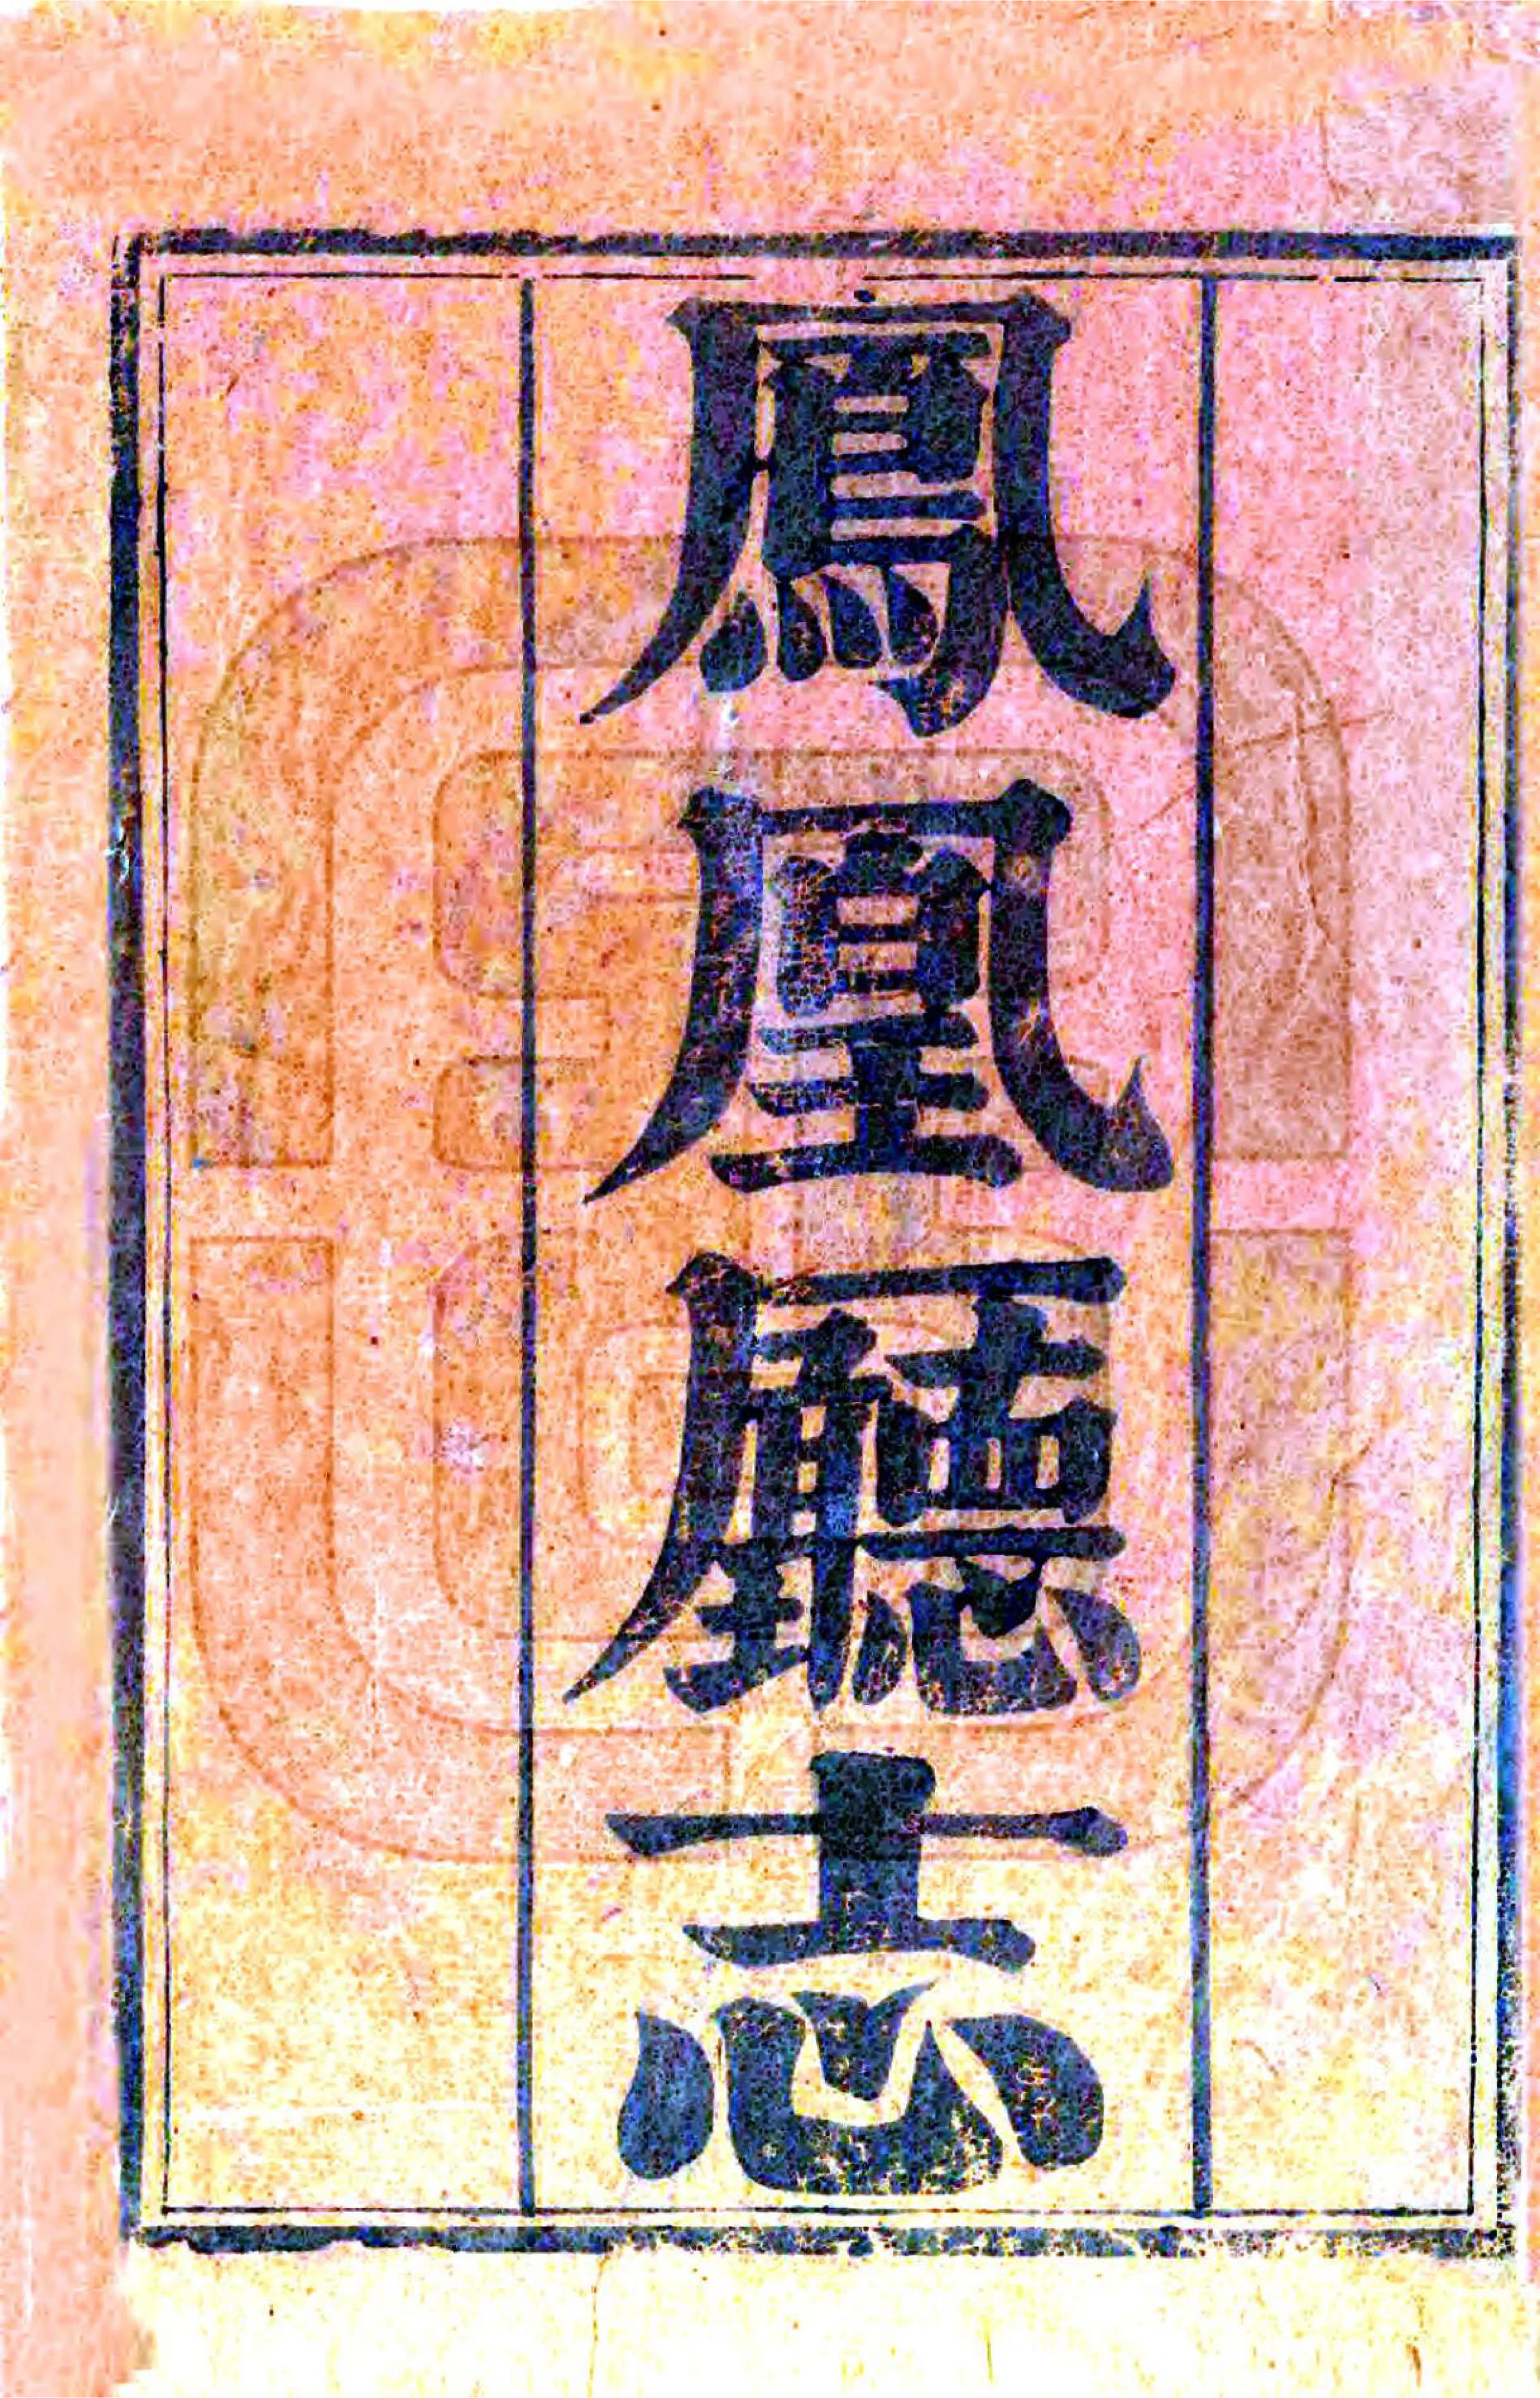 鳳凰廳志